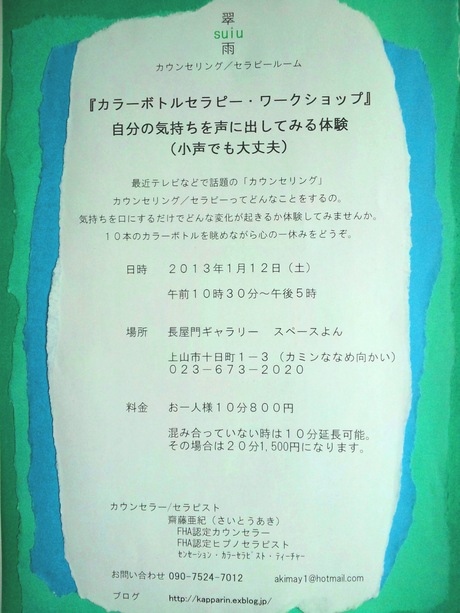 翠
suiu
雨
カウンセリング／セラピールーム
『カラーボトルセラピー・ワークショップ』
自分の気持ちを声に出してみる体験
（小声でも大丈夫）
最近テレビなどで話題の「カウンセリング」
カウンセリング／セラピーってどんなことをするの。
気持ちを口にするだけでどんな変化が起きるか体験してみませんか。
１０本のカラーボトルを眺めながら心の一休みをどうぞ。
日時　２０１３年１月１２日（土）
午前１０時３０分～午後５時
場所　長屋門ギャラリー　スペースよん
上山市十日町１－３（カミンななめ向かい）
０２３－６７３－２０２０
料金　お一人様１０分８００円
混み合っていない時は１０分延長可能。
その場合は２０分1,500円になります。
カウンセラー/セラピスト
齋藤亜紀（さいとうあき）
FHA認定カウンセラー
FHA認定ヒプノセラピスト
ｾﾝｾｰｼｮﾝ・ｶﾗｰｾﾗﾋﾟｽﾄ・ﾃｨｰﾁｬｰ
お問い合わせ 090-7524-7012　akimay1@hotmail.com
ブログ　http://kapparin.exblog.jp/